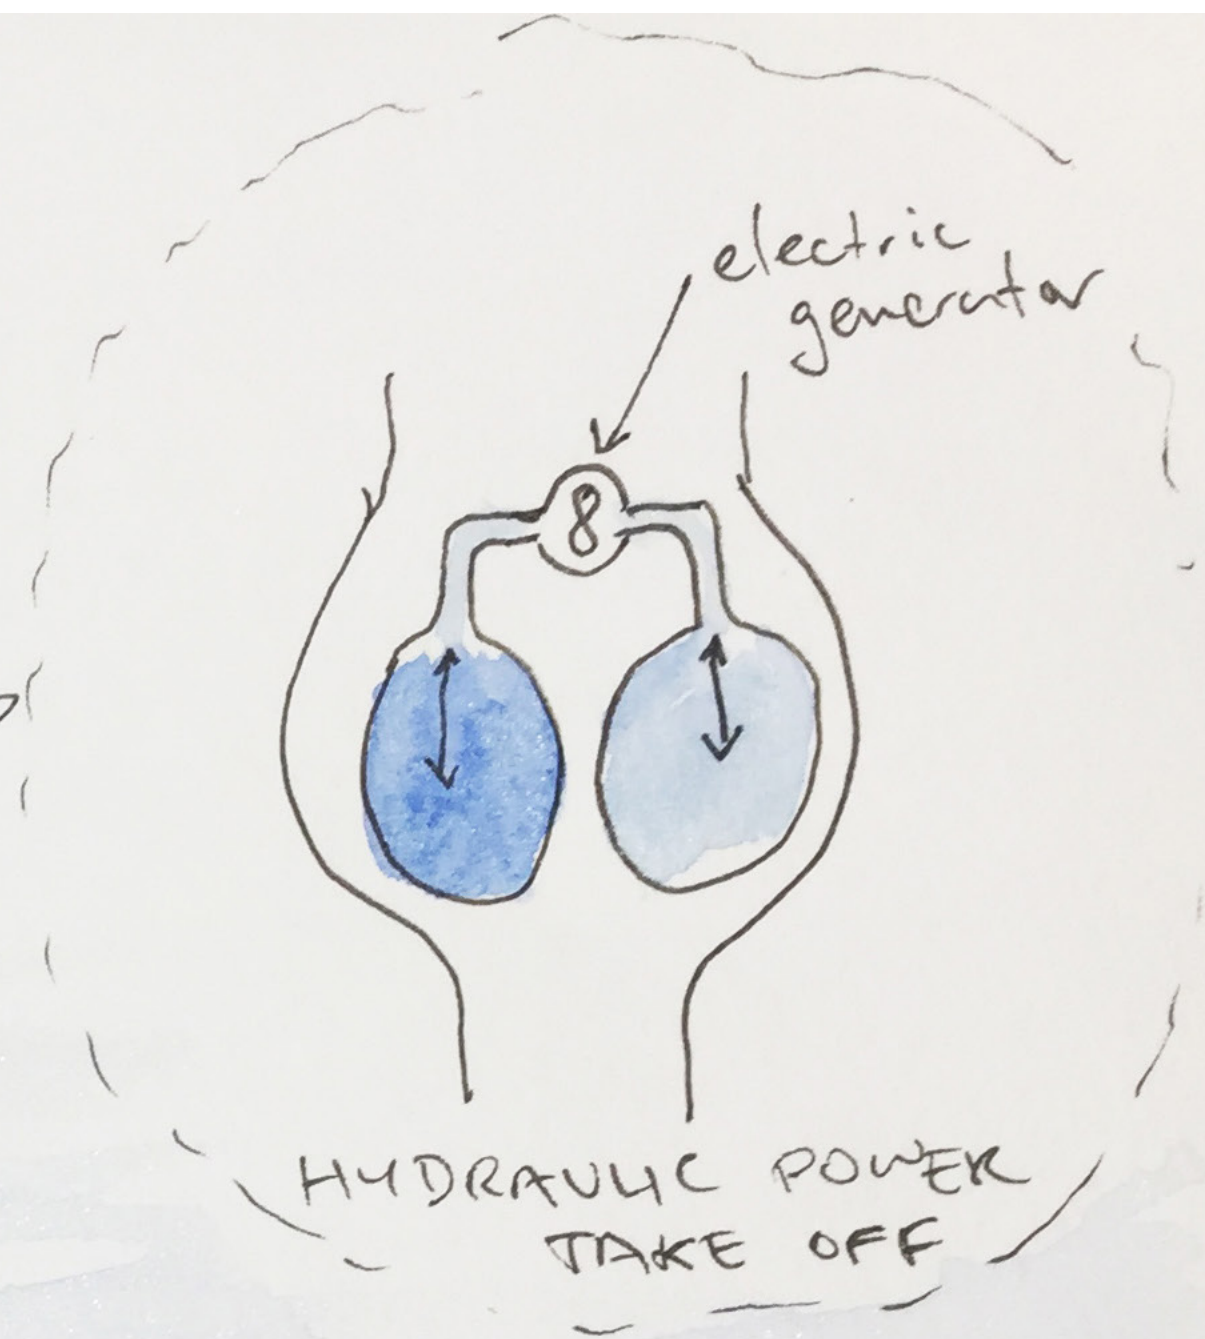 electric
generator
8
HYDRAULIC POWER
TAKE OFF